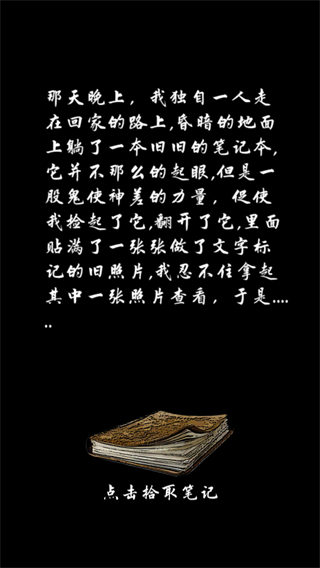 那天晚上，我独自一人走
在回家的路上,昏暗的地面
上躺了一本旧旧的笔记本,
它并不那么的起眼,但是一
股鬼使神差的力量，促使
我捡起了它,翻开了它,里面
贴满了一张张做了文字标
记的旧照片,我忍不住拿起
其中一张照片查看，于是....
..
点击拾取笔记